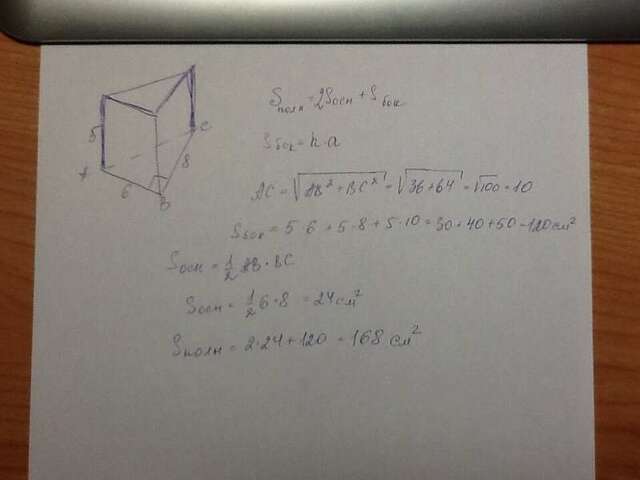 5
A
6
B
8
C
Sполн = 2Sосн + Sбок
Sбок = h·a
AC = √AB² + BC² = √36+64 = √100 = 10
Sбок = 5·6 + 5·8 + 5·10 = 30 + 40 + 50 = 120 см²
Sосн = 1/2 AB · BC
Sосн = 1/2 6·8 = 24 см²
Sполн = 2·24 + 120 = 168 см²